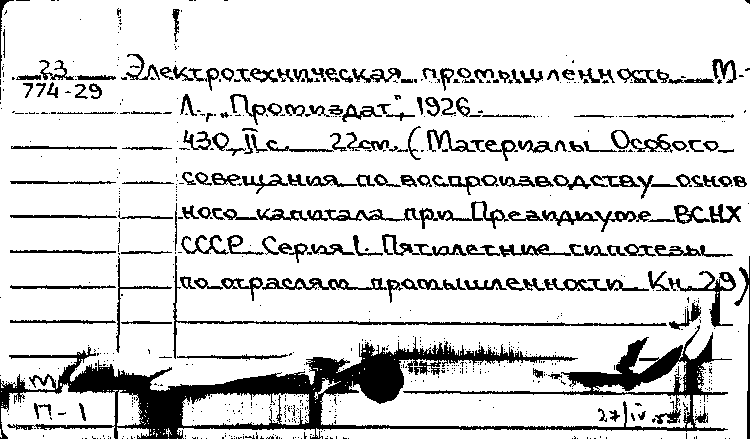 23 Электротехническая промышленность. М.-
774-29 Л., „Промиздат", 1926.
430, II с. 22 cm. (Материалы Особого
совещания по воспроизводству основ
ного капитала при Президиуме ВСНХ
СССР. Серия I. Пятилетние гипотезы
по отраслям промышленности Кн. 29)
М
П-1 27/IV